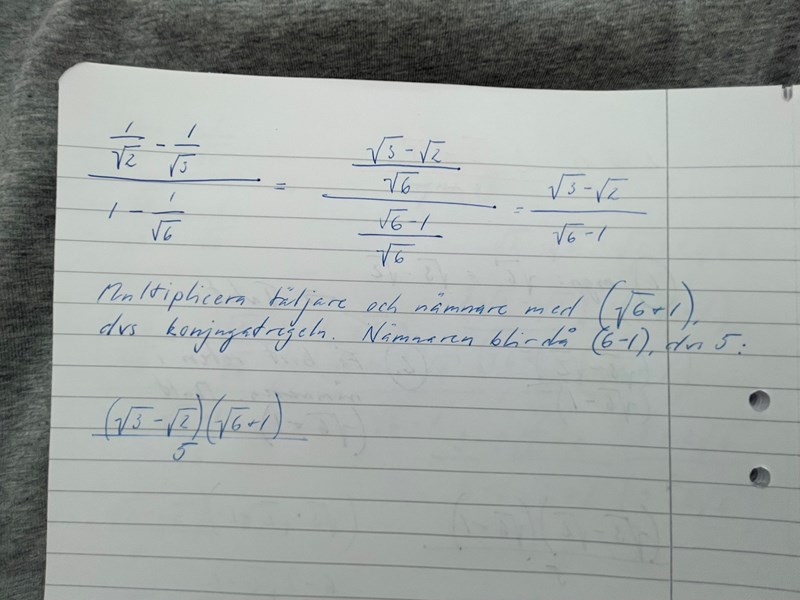 (1/√2 - 1/√3) / (1 - 1/√6) = ((√3-√2)/√6) / ((√6-1)/√6) = (√3-√2)/(√6-1)
Multiplicera täljare och nämnare med (√6+1),
dvs konjugatregeln. Nämnaren blir då (6-1), dvs 5:
(√3-√2)(√6+1)/5